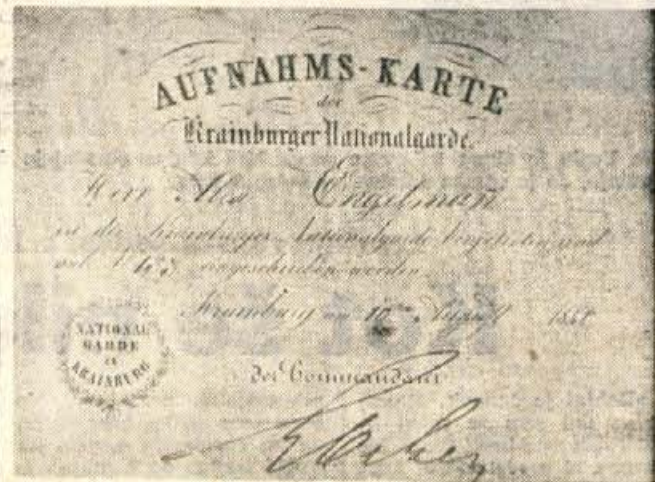 AUFNAHMS-KARTE
der
Krainburger Nationalgarde.
Herr Alex Engelman
ist der Krainburger Nationalgarde beygetreten und
sub No eingeschrieben worden.
Krainburg am 10ten August 1848
NATIONAL
GARDE
in
KRAINBURG
Der Commandant